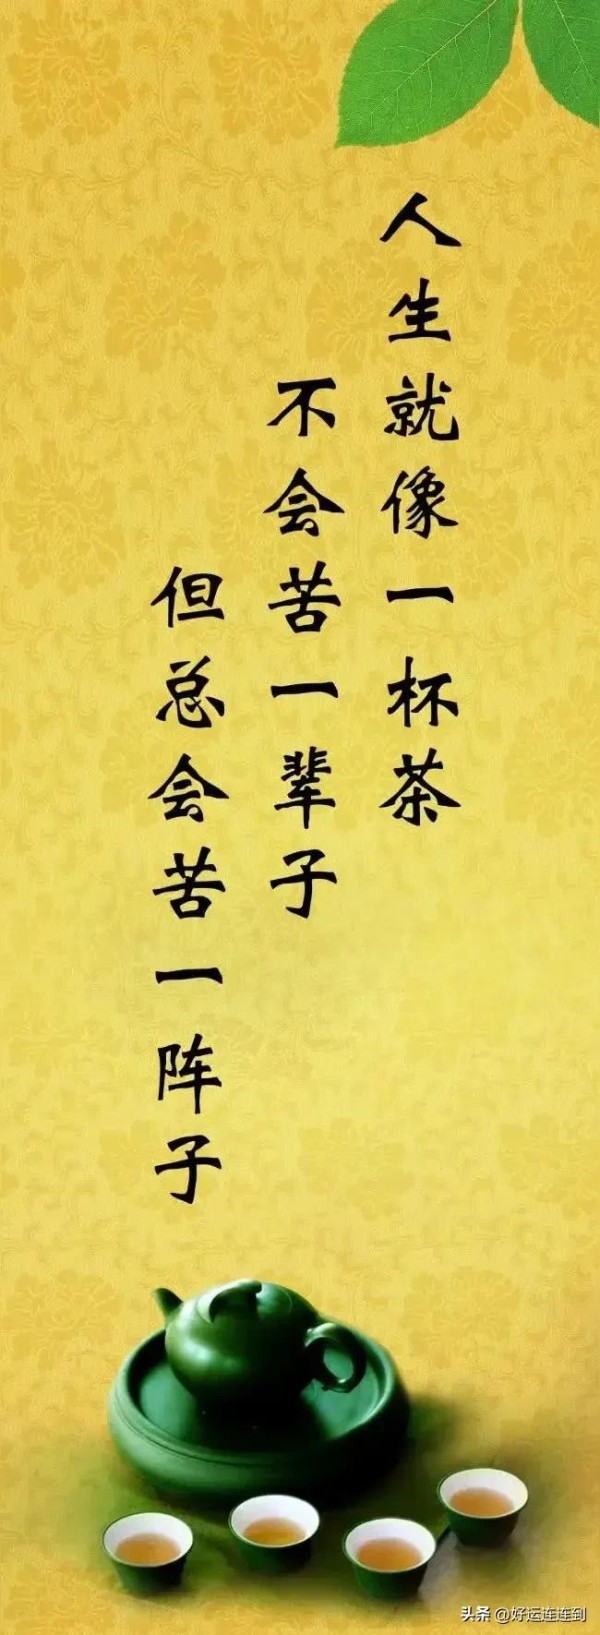 人生就像一杯茶
不会苦一辈子
但总会苦一阵子
头条 @好运连连到